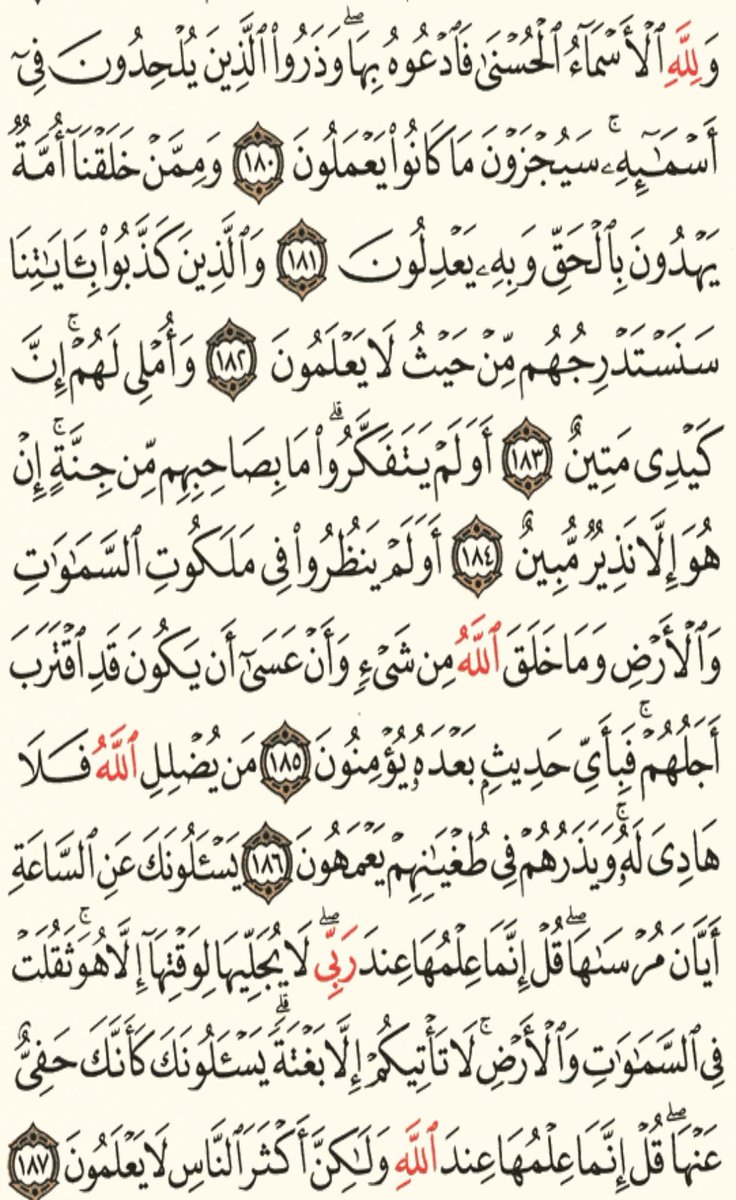 وَلِلَّهِ ٱلْأَسْمَآءُ ٱلْحُسْنَىٰ فَٱدْعُوهُ بِهَا ۖ وَذَرُوا۟ ٱلَّذِينَ يُلْحِدُونَ فِىٓ
أَسْمَـٰٓئِهِۦ ۚ سَيُجْزَوْنَ مَا كَانُوا۟ يَعْمَلُونَ ١٨٠ وَمِمَّنْ خَلَقْنَآ أُمَّةٌ
يَهْدُونَ بِٱلْحَقِّ وَبِهِۦ يَعْدِلُونَ ١٨١ وَٱلَّذِينَ كَذَّبُوا۟ بِـَٔايَـٰتِنَا
سَنَسْتَدْرِجُهُم مِّنْ حَيْثُ لَا يَعْلَمُونَ ١٨٢ وَأُمْلِى لَهُمْ ۚ إِنَّ
كَيْدِى مَتِينٌ ١٨٣ أَوَلَمْ يَتَفَكَّرُوا۟ ۗ مَا بِصَاحِبِهِم مِّن جِنَّةٍ ۚ إِنْ
هُوَ إِلَّا نَذِيرٌ مُّبِينٌ ١٨٤ أَوَلَمْ يَنظُرُوا۟ فِى مَلَكُوتِ ٱلسَّمَـٰوَٰتِ
وَٱلْأَرْضِ وَمَا خَلَقَ ٱللَّهُ مِن شَىْءٍ وَأَنْ عَسَىٰٓ أَن يَكُونَ قَدِ ٱقْتَرَبَ
أَجَلُهُمْ ۖ فَبِأَىِّ حَدِيثٍۭ بَعْدَهُۥ يُؤْمِنُونَ ١٨٥ مَن يُضْلِلِ ٱللَّهُ فَلَا
هَادِىَ لَهُۥ ۚ وَيَذَرُهُمْ فِى طُغْيَـٰنِهِمْ يَعْمَهُونَ ١٨٦ يَسْـَٔلُونَكَ عَنِ ٱلسَّاعَةِ
أَيَّانَ مُرْسَىٰهَا ۖ قُلْ إِنَّمَا عِلْمُهَا عِندَ رَبِّى ۖ لَا يُجَلِّيهَا لِوَقْتِهَآ إِلَّا هُوَ ۚ ثَقُلَتْ
فِى ٱلسَّمَـٰوَٰتِ وَٱلْأَرْضِ ۚ لَا تَأْتِيكُمْ إِلَّا بَغْتَةً ۗ يَسْـَٔلُونَكَ كَأَنَّكَ حَفِىٌّ
عَنْهَا ۖ قُلْ إِنَّمَا عِلْمُهَا عِندَ ٱللَّهِ وَلَـٰكِنَّ أَكْثَرَ ٱلنَّاسِ لَا يَعْلَمُونَ ١٨٧